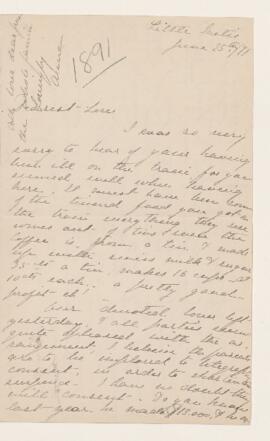 Little Metis
June 25th/91
1891
With love dear from
the whole family
Lovingly
Anna
Dearest Love
I was so very
sorry to hear of your having
been ill on the train for you
seemed well when leaving
here. It must have been some
of the food you got on
the train everything they use
comes out of tins even the
coffee is from a tin &
milk & sugar
35 cts a tin, makes 16 cups at
10 cts each, a pretty good
profit eh!
Our devoted lovers left
yesterday, & all parties seem
pleased with the
I believe the parents
are to be implored to telegraph
consent, in order to
suspense. I have no doubt they
will "consent". Do you know
last year he made $15.000, & he